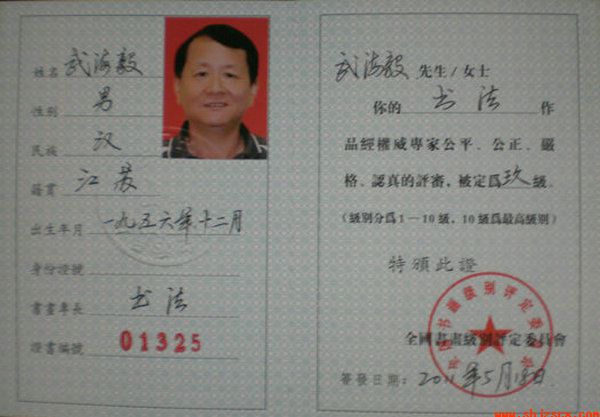 姓名 武海毅
性别 男
民族 汉
籍貫 江苏
出生年月 一九五六年十二月
身份證號
書畫專長 书法
證書編號 01325
武海毅 先生/女士
你的 书法 作
品經權威專家公平、公正、嚴
格、認真的評審，被定爲玖級。
(級别分爲1—10級，10級爲最高級别)
特頒此證
全國書畫級别評定委員會
簽發日期：2011年5月18日